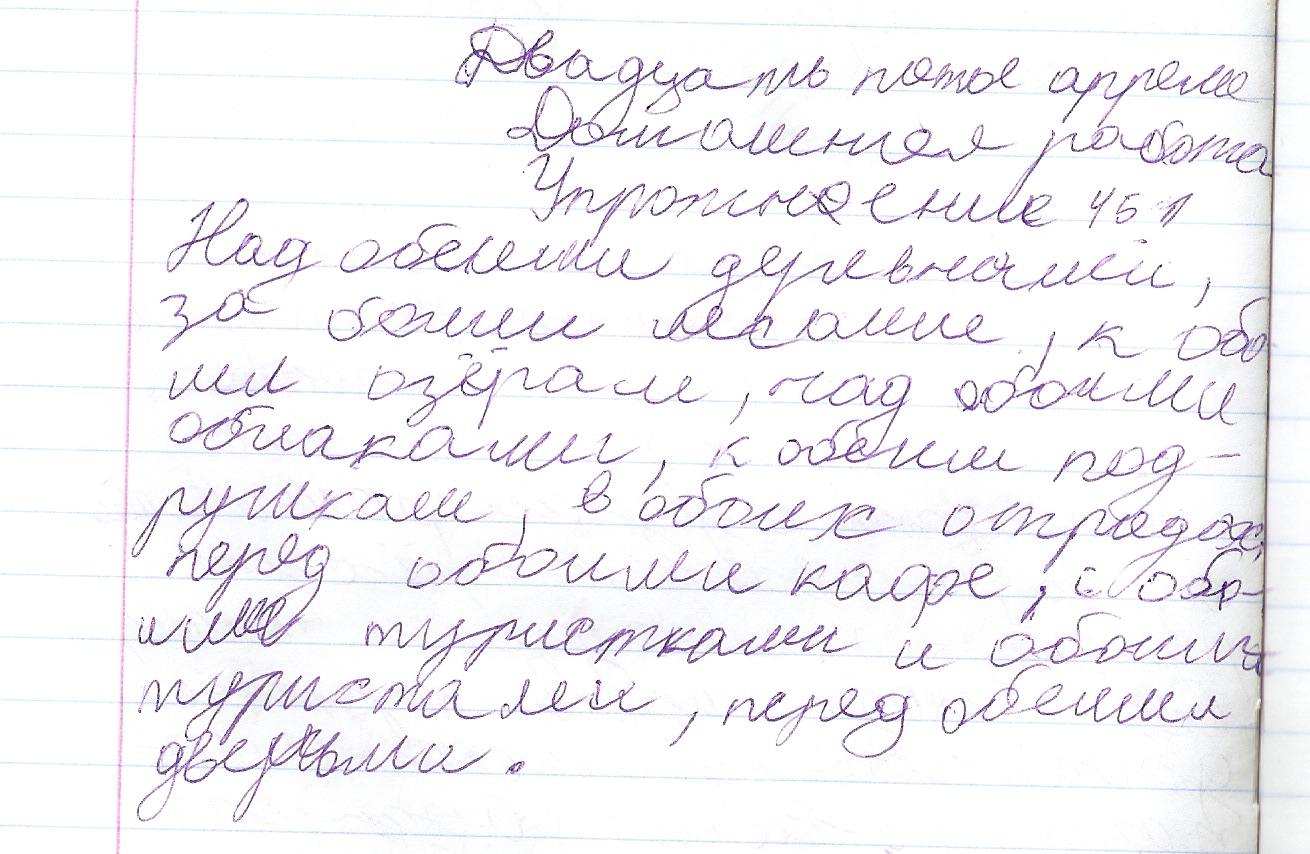 Двадцать пятое апреля
Домашняя работа
Упражнение 451
Над обеими деревнями,
за обоими лесами, к обо
им озёрам, над обоими
облаками, к обеим под-
ружкам, в обоих отрядах,
перед обоими кафе, с обо-
ими туристками и обоими
туристами, перед обеими
дверьми.